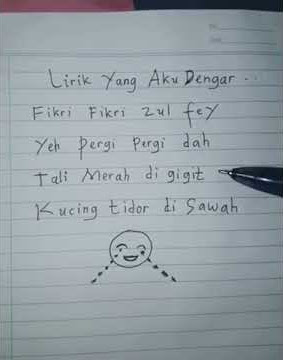 Lirik Yang Aku Dengar ..
Fikri Fikri zul fey
Yeh pergi pergi dah
Tali Merah di gigit
Kucing tidor di Sawah